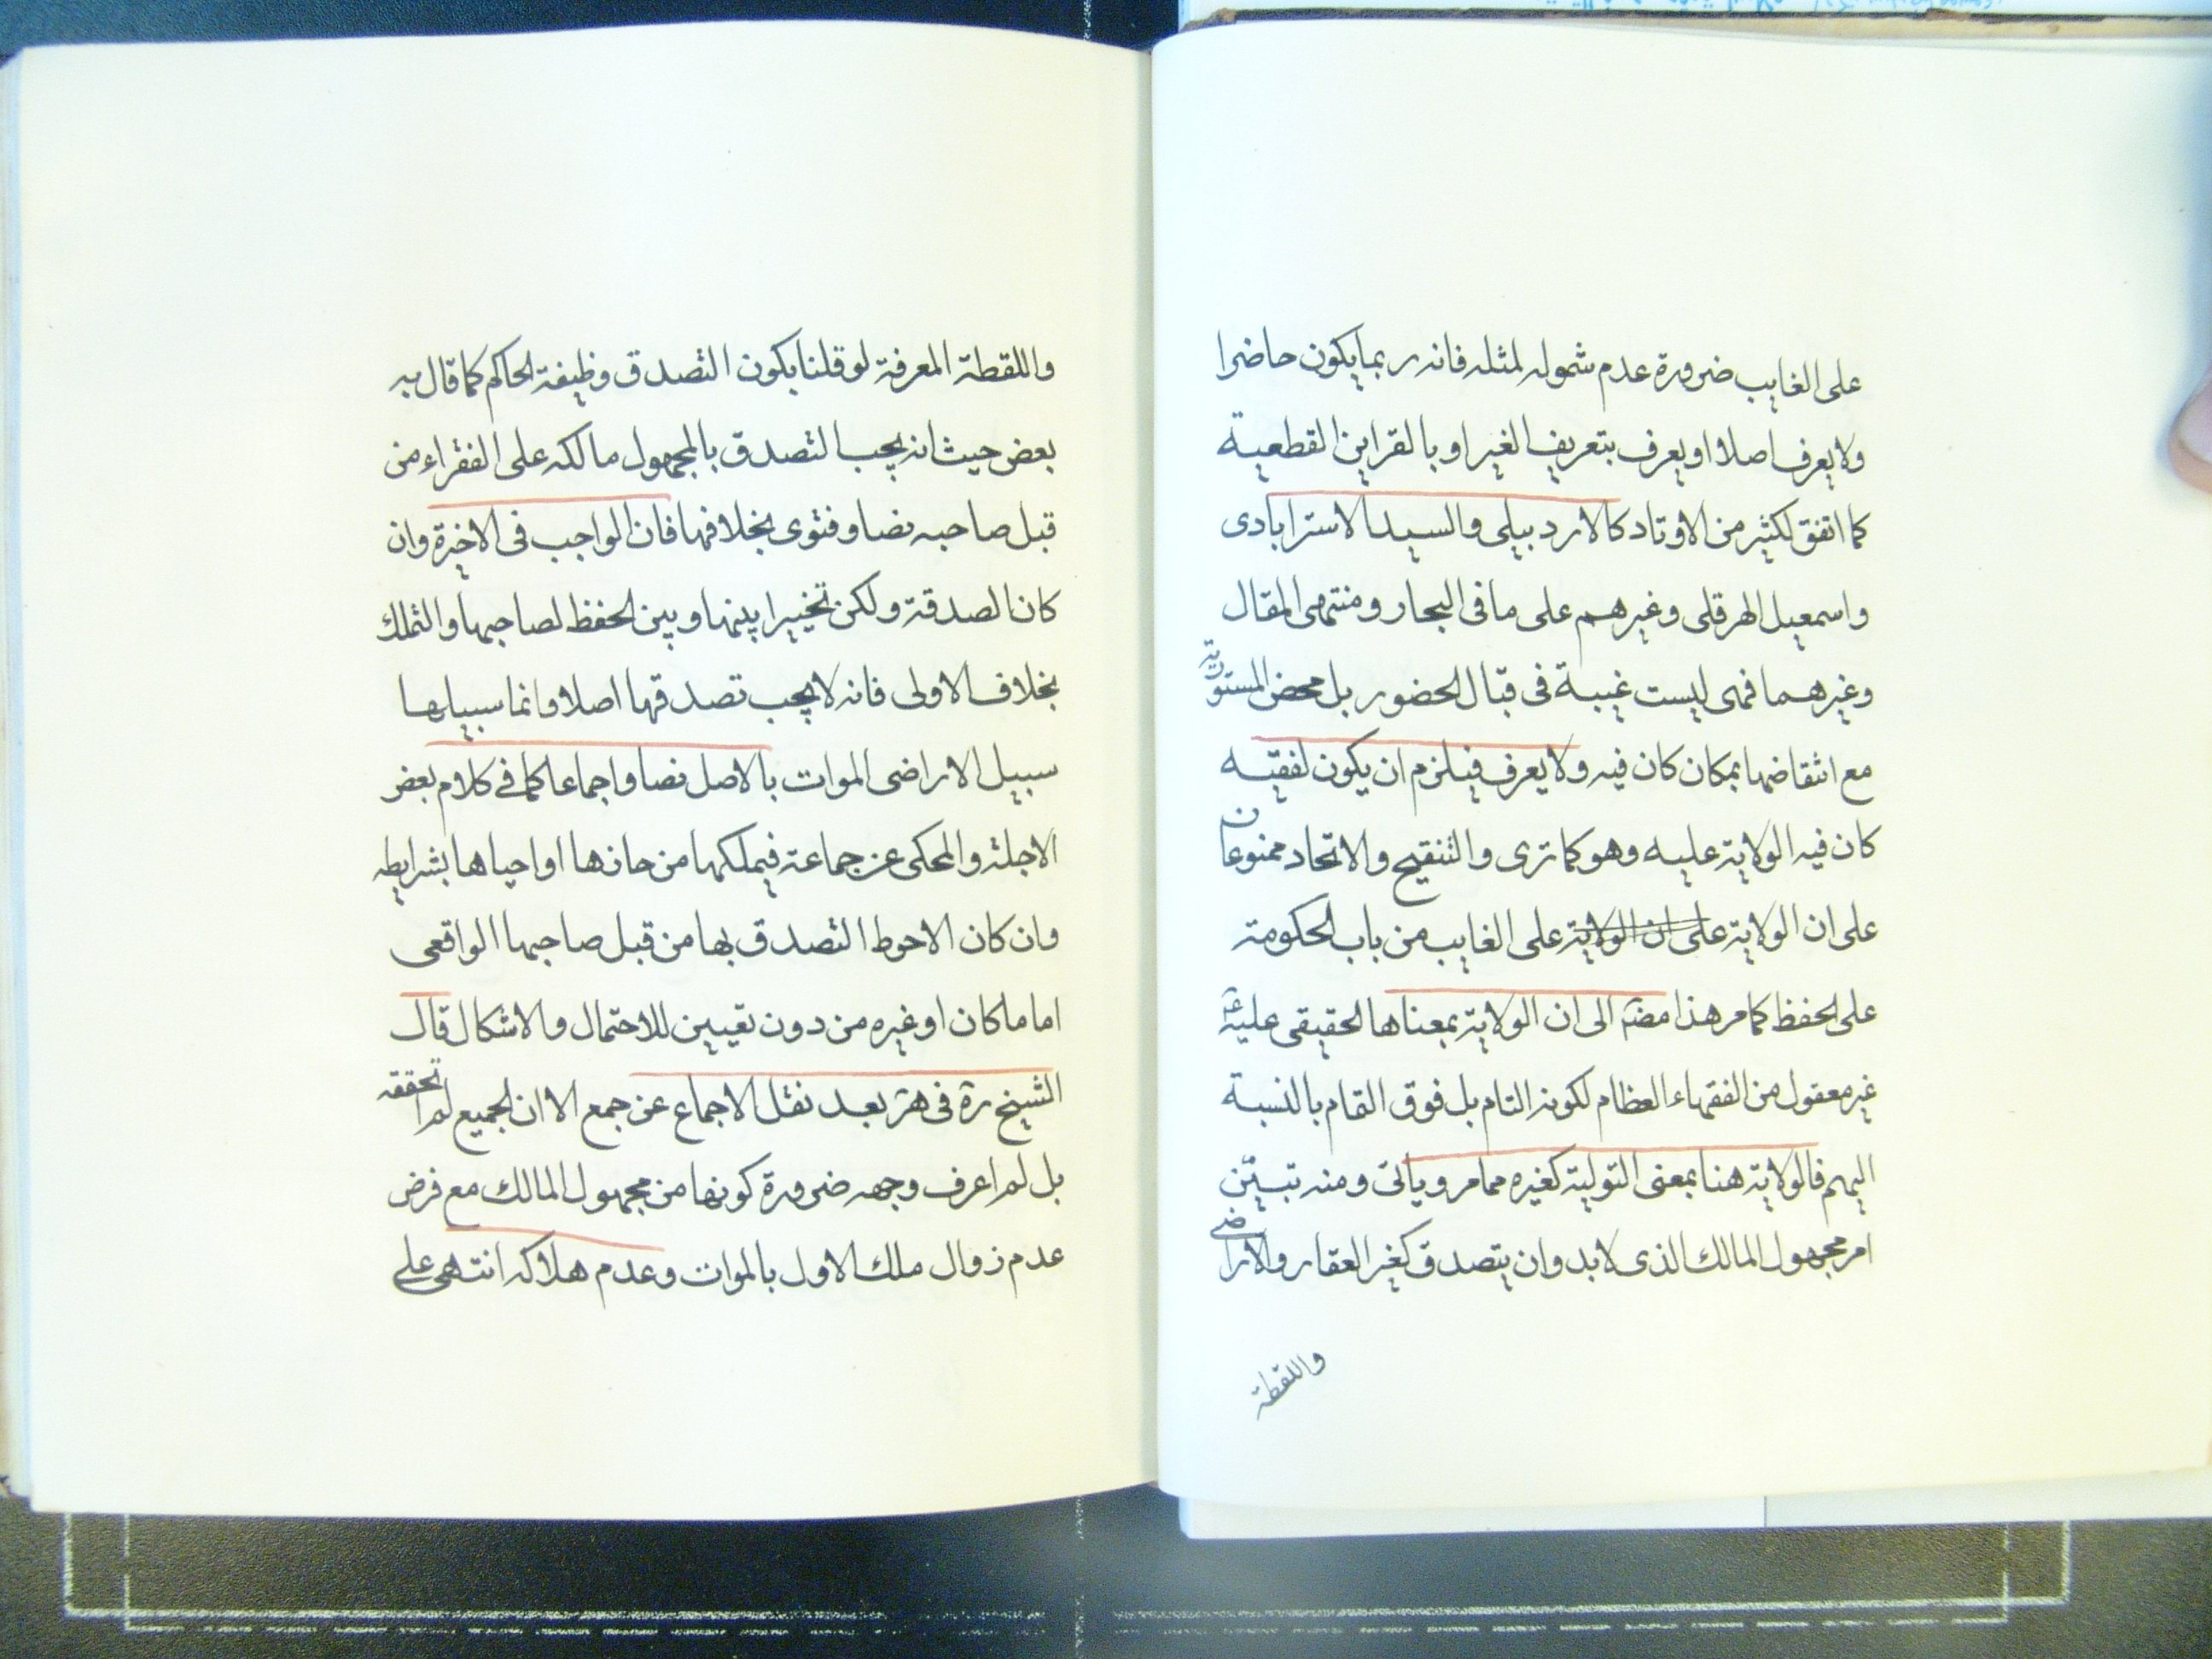 على الغايب ضرورة عدم شموله لمثله فانه ربما يكون حاضرا
ولا يعرف اصلا او يعرف بتعريف الغير او بالقراين القطعية
كما اتفق لكثير من الاوتاد كالاردبيلى والسيد الاسترابادى
واسمعيل الهرقلى وغيرهم على ما فى البحار ومنتهى المقال
وغيرهما فهى ليست غيبة فى قبال الحضور بل محض المستورية
مع انتقاضها بمكان كان فيه ولا يعرف فيلزم ان يكون لفقيه
كان فيه الولاية عليه وهو كما ترى والتنقيح والاتحاد ممنوعان
على ان الولاية على ان الولاية على الغايب من باب الحكومة
على الحفظ كما مر هذا مضم الى ان الولاية بمعناها الحقيقى عليه ع
غير معقول من الفقهاء العظام لكونه التام بل فوق التمام بالنسبة
اليهم فالولاية هنا بمعنى التولية كغيره مما مر وياتى ومنه تبين
امر مجهول المالك الذى لابد وان يتصدق كغير العقار والاراضى
واللقطة
واللقطة المعرفة لو قلنا بكون التصدق وظيفة الحاكم كما قال به
بعض حيث انه يجب التصدق بالمجهول مالكه على الفقراء من
قبل صاحبه نصا وفتوى بخلافها فان الواجب فى الاخرة وان
كان الصدقة ولكن تخييرا بينها وبين الحفظ لصاحبها والتملك
بخلاف الاولى فانه لا يجب تصدقها اصلا وانما سبيلها
سبيل الاراضى الموات بالاصل نصا واجماعا كما فى كلام بعض
الاجلة والمحكى عن جماعة فيملكها من حازها او احياها بشرايطه
وان كان الاحوط التصدق بها من قبل صاحبها الواقعى
اماما كان او غيره من دون تعيين للاحتمال والاشكال قال
الشيخ ره فى هر بعد نقل الاجماع عن جمع الا ان الجميع لم اتحققه
بل لم اعرف وجهه ضرورة كونها من مجهول المالك مع فرض
عدم زوال ملك الاول بالموات وعدم هلاكه انتهى على